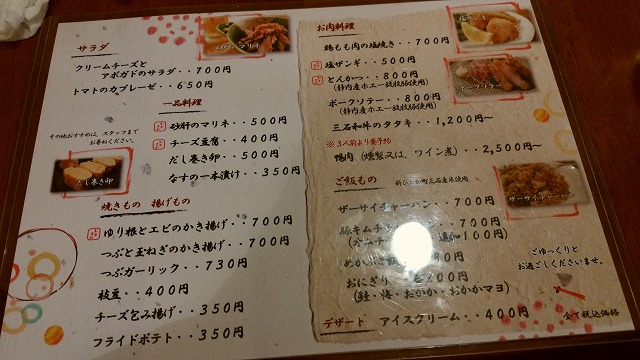 サラダ
砂肝のマリネ
クリームチーズと
アボガドのサラダ・・700円
トマトのカプレーゼ・・650円
一品料理
その他おすすめは、スタッフまで
お尋ねください。
砂肝のマリネ・・500円
チーズ豆腐・・400円
だし巻き卵・・500円
なすの一本漬け・・350円
だし巻き卵
焼きもの 揚げもの
ゆり根とエビのかき揚げ・・700円
つぶと玉ねぎのかき揚げ・・700円
つぶガーリック・・730円
枝豆・・400円
チーズ包み揚げ・・350円
フライドポテト・・350円
お肉料理
塩ザンギ
鶏もも肉の塩焼き・・700円
塩ザンギ・・500円
とんかつ・・800円
(静内産ホエー豚使用)
ポークソテー・・800円
(静内産ホエー豚使用)
ポークソテー
三石和牛のタタキ・・1,200円～
※3人前より要予約
鴨肉(燻製又は、ワイン煮)・・2,500円～
ご飯もの
新ひだか町三石産米使用
ザーサイチャーハン・・700円
ザーサイチャーハン
豚キムチ 700円
100円)
めか 80円
おにぎり 200円
(鮭・梅・おかか・おかかマヨ)
デザート アイスクリーム・・400円
ごゆっくりと
お過ごしくださいませ。
全て税込価格